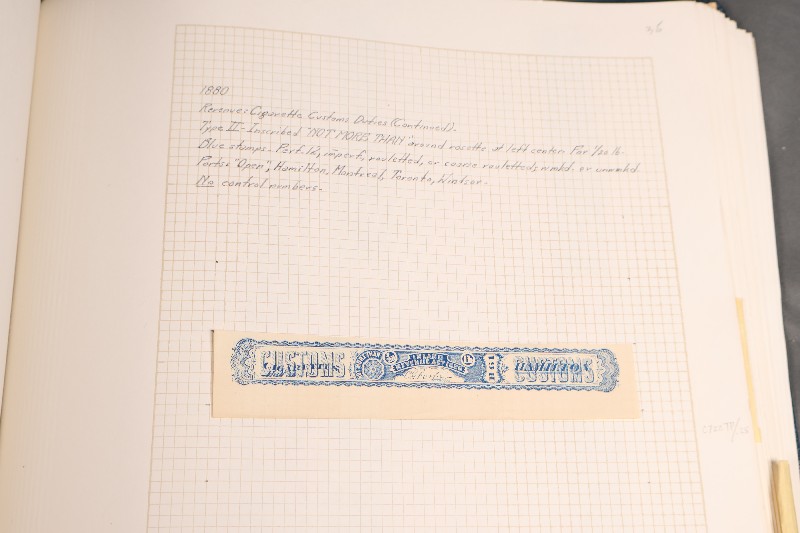 36
1880
Revenue: Cigarette Customs Duties (Continued).
Type II - Inscribed "NOT MORE THAN" around rosette at left center. For 1/20 lb.
Blue stamps. Perf. 12, imperf, rouletted, or coarse rouletted; wmkd. or unwmkd.
Ports: "Open", Hamilton, Montreal, Toronto, Windsor.
No control numbers.
CUSTOMS
HAMILTON
CUSTOMS